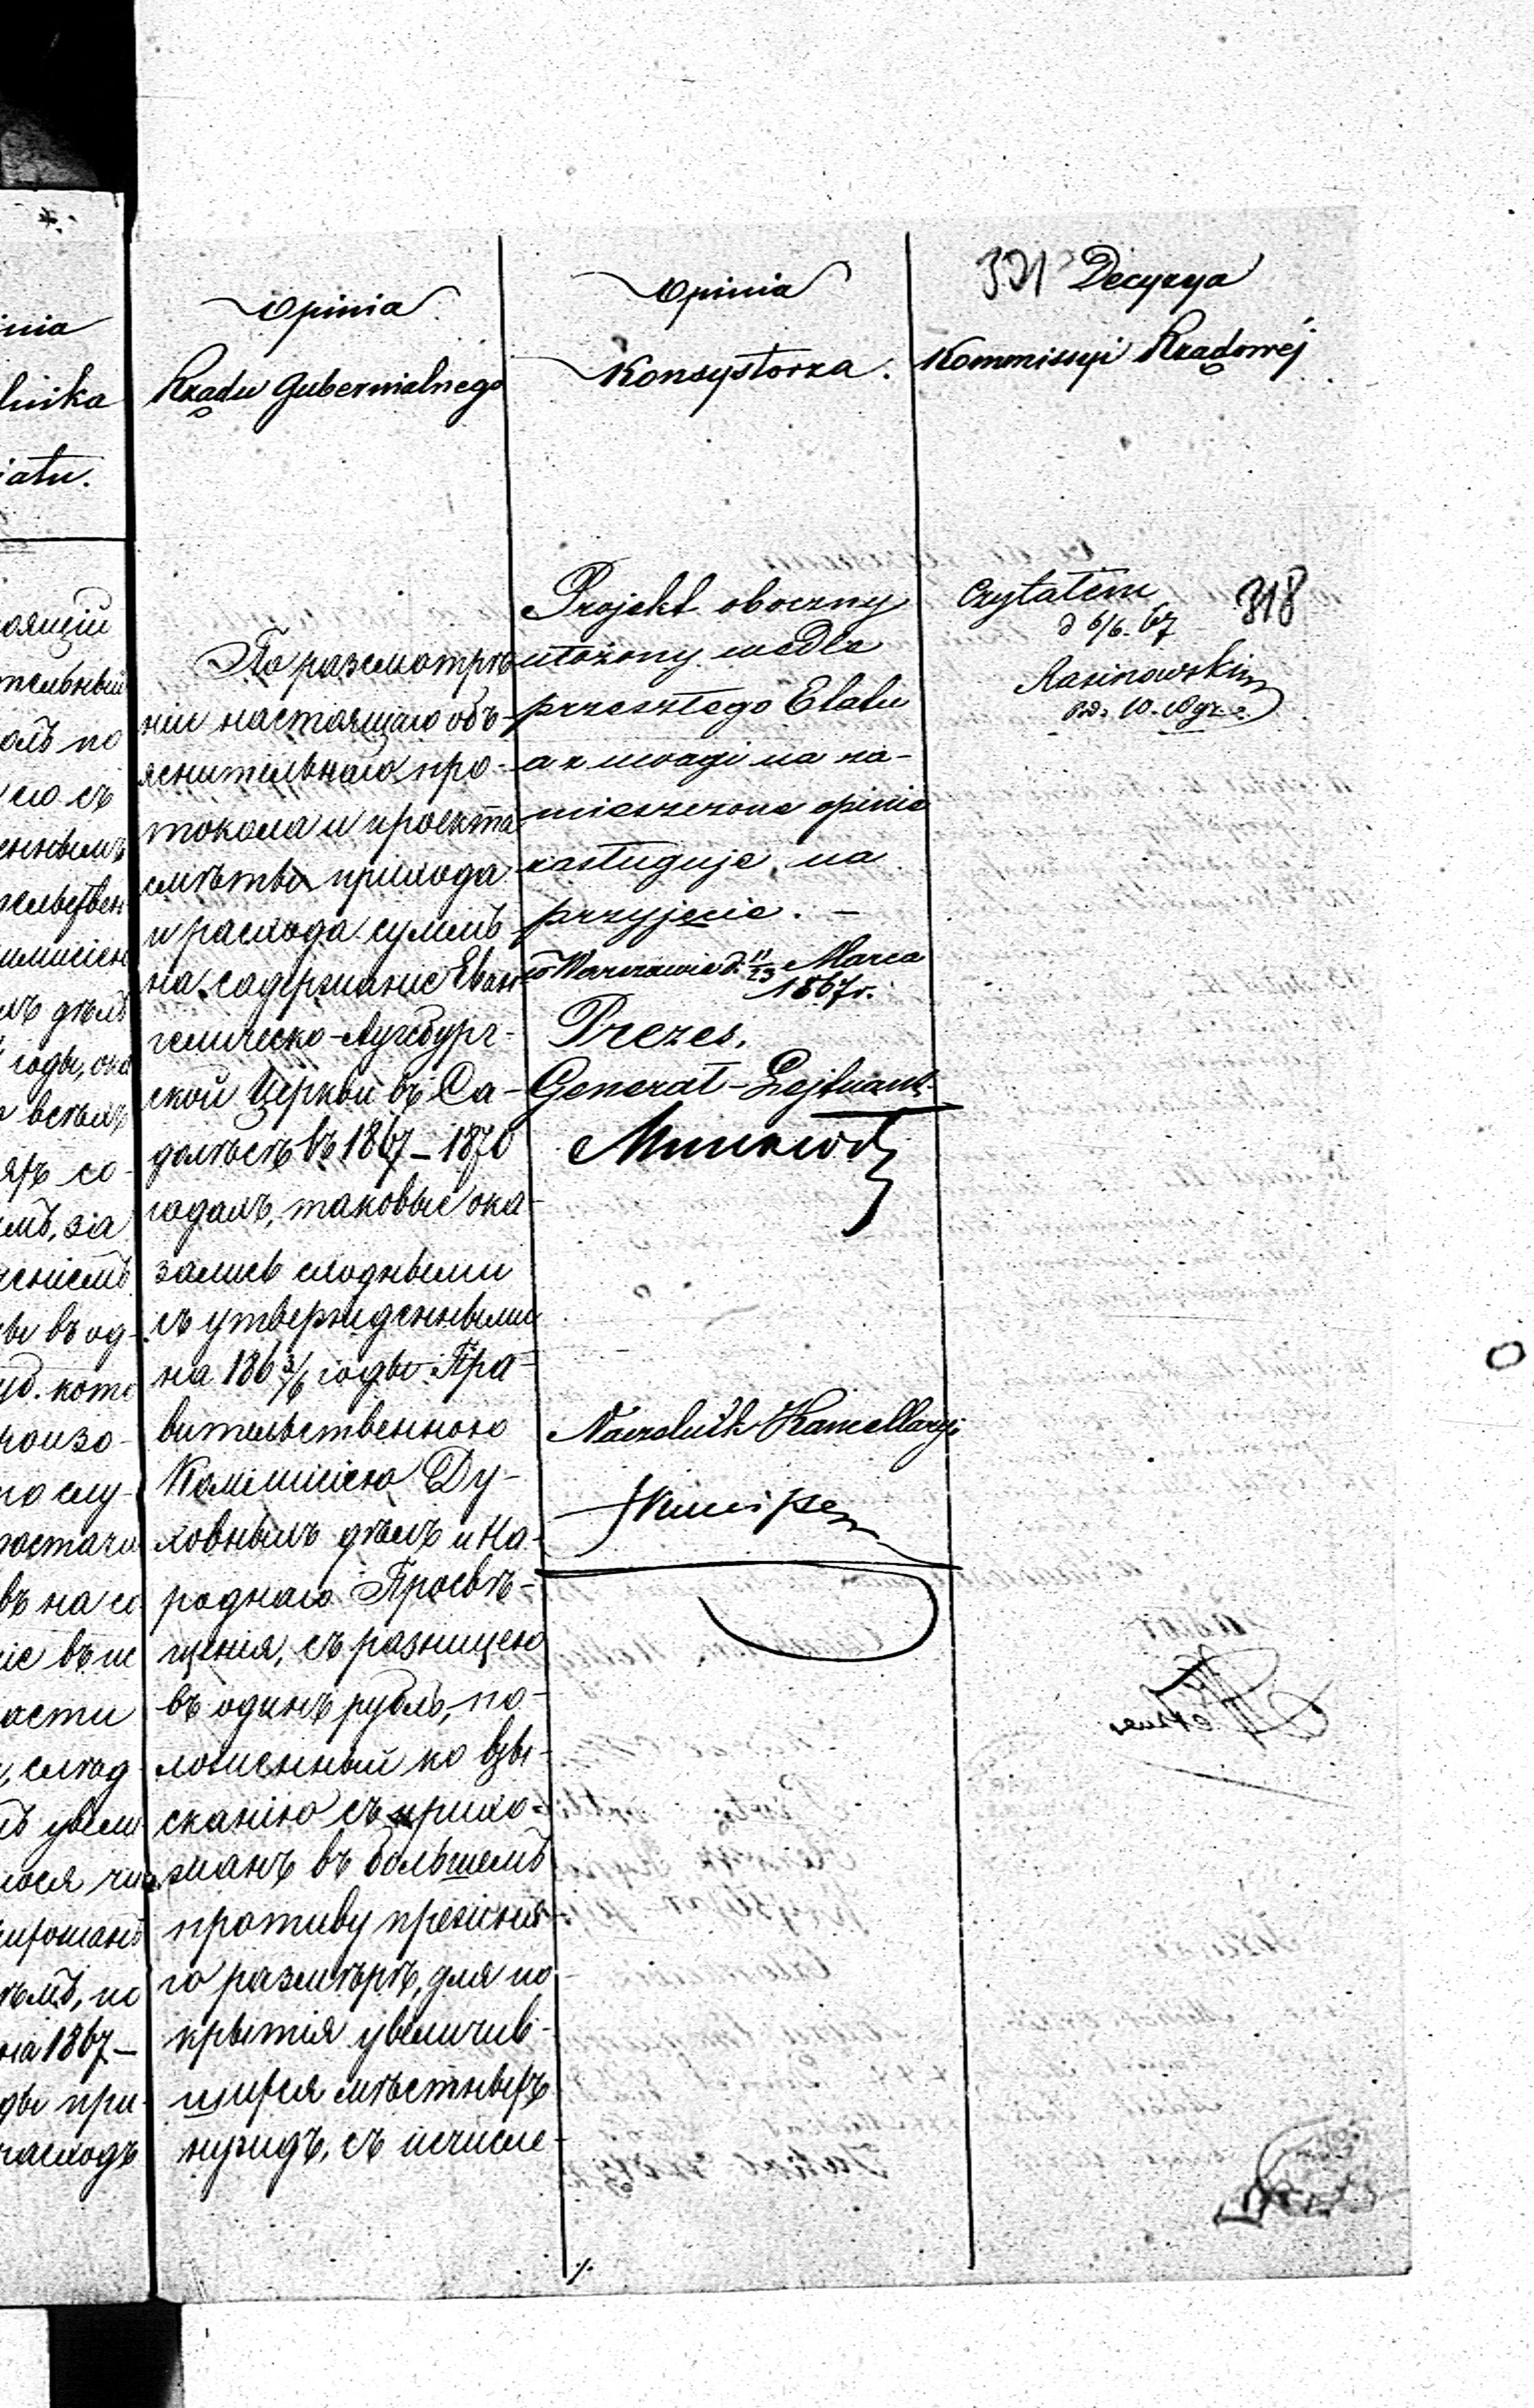 inia
lnika
iatu.
оящій
тельный
по
съ
годы, ока
со-
за
въ од-
по слу-
въ на со
асти
на 1867 –
при
расходъ
Opinia
Rządu Gubernialnego
По разсмотрѣ-
ніи настоящаго объ-
яснительнаго про-
токола и проекта
смѣты прихода
и расхода суммъ
на содержаніе Еван-
гелическо-Аугсбург-
ской Церкви въ Са-
долѣсѣ въ 1867 – 1870
годахъ, таковые ока-
зались сходными
съ утвержденными
на 186 3/6 годы Пра-
вительственною
Коммисіею Ду-
ховныхъ дѣлъ и На-
роднаго Просвѣ-
щенія, съ разницею
въ одинъ рубль, по-
ложенный ко взы-
сканію съ прихо-
жанъ въ большемъ
противу прежня-
го размѣрѣ, для по-
крытія увеличив-
шихся мѣстныхъ
нуждъ, съ исчисле-
Opinia
Konsystorza.
Projekt oboczny
ułożony wedle
przeszłego Etatu
a z uwagi na za-
mieszczone opinie
zasługuje na
przyjęcie. –
w Warszawie d. 11/23 Marca
1867 r.
Prezes,
Generał-Lejtnant
Naczelnik Kancellaryi
321 Decyzya
Kommissyi Rządowéj
Czytałem 318
d 6/6. 67